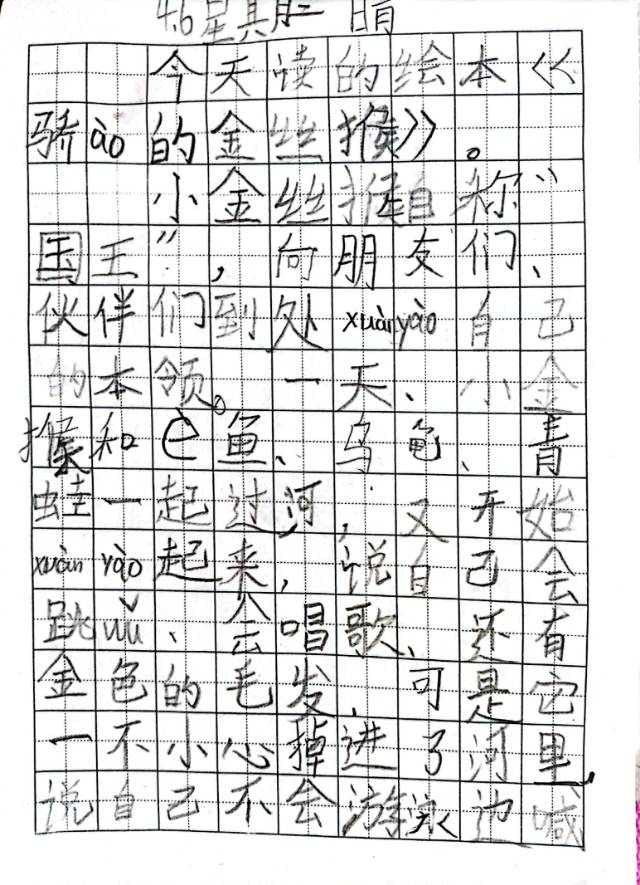 4.6 星其月二 晴
今天读的绘本《
骄ào的金丝猴》。
小金丝猴自称“
国王”,向朋友们、
伙伴们到处xuànyào自己
的本领。一天、小金
猴和è鱼、乌龟、青
蛙一起过河,又开始
xuàn yào起来,说自己会
跳wǔ、会唱歌、还有
金色的毛发,可是它
一不小心掉进了河里,
说自己不会游泳边喊